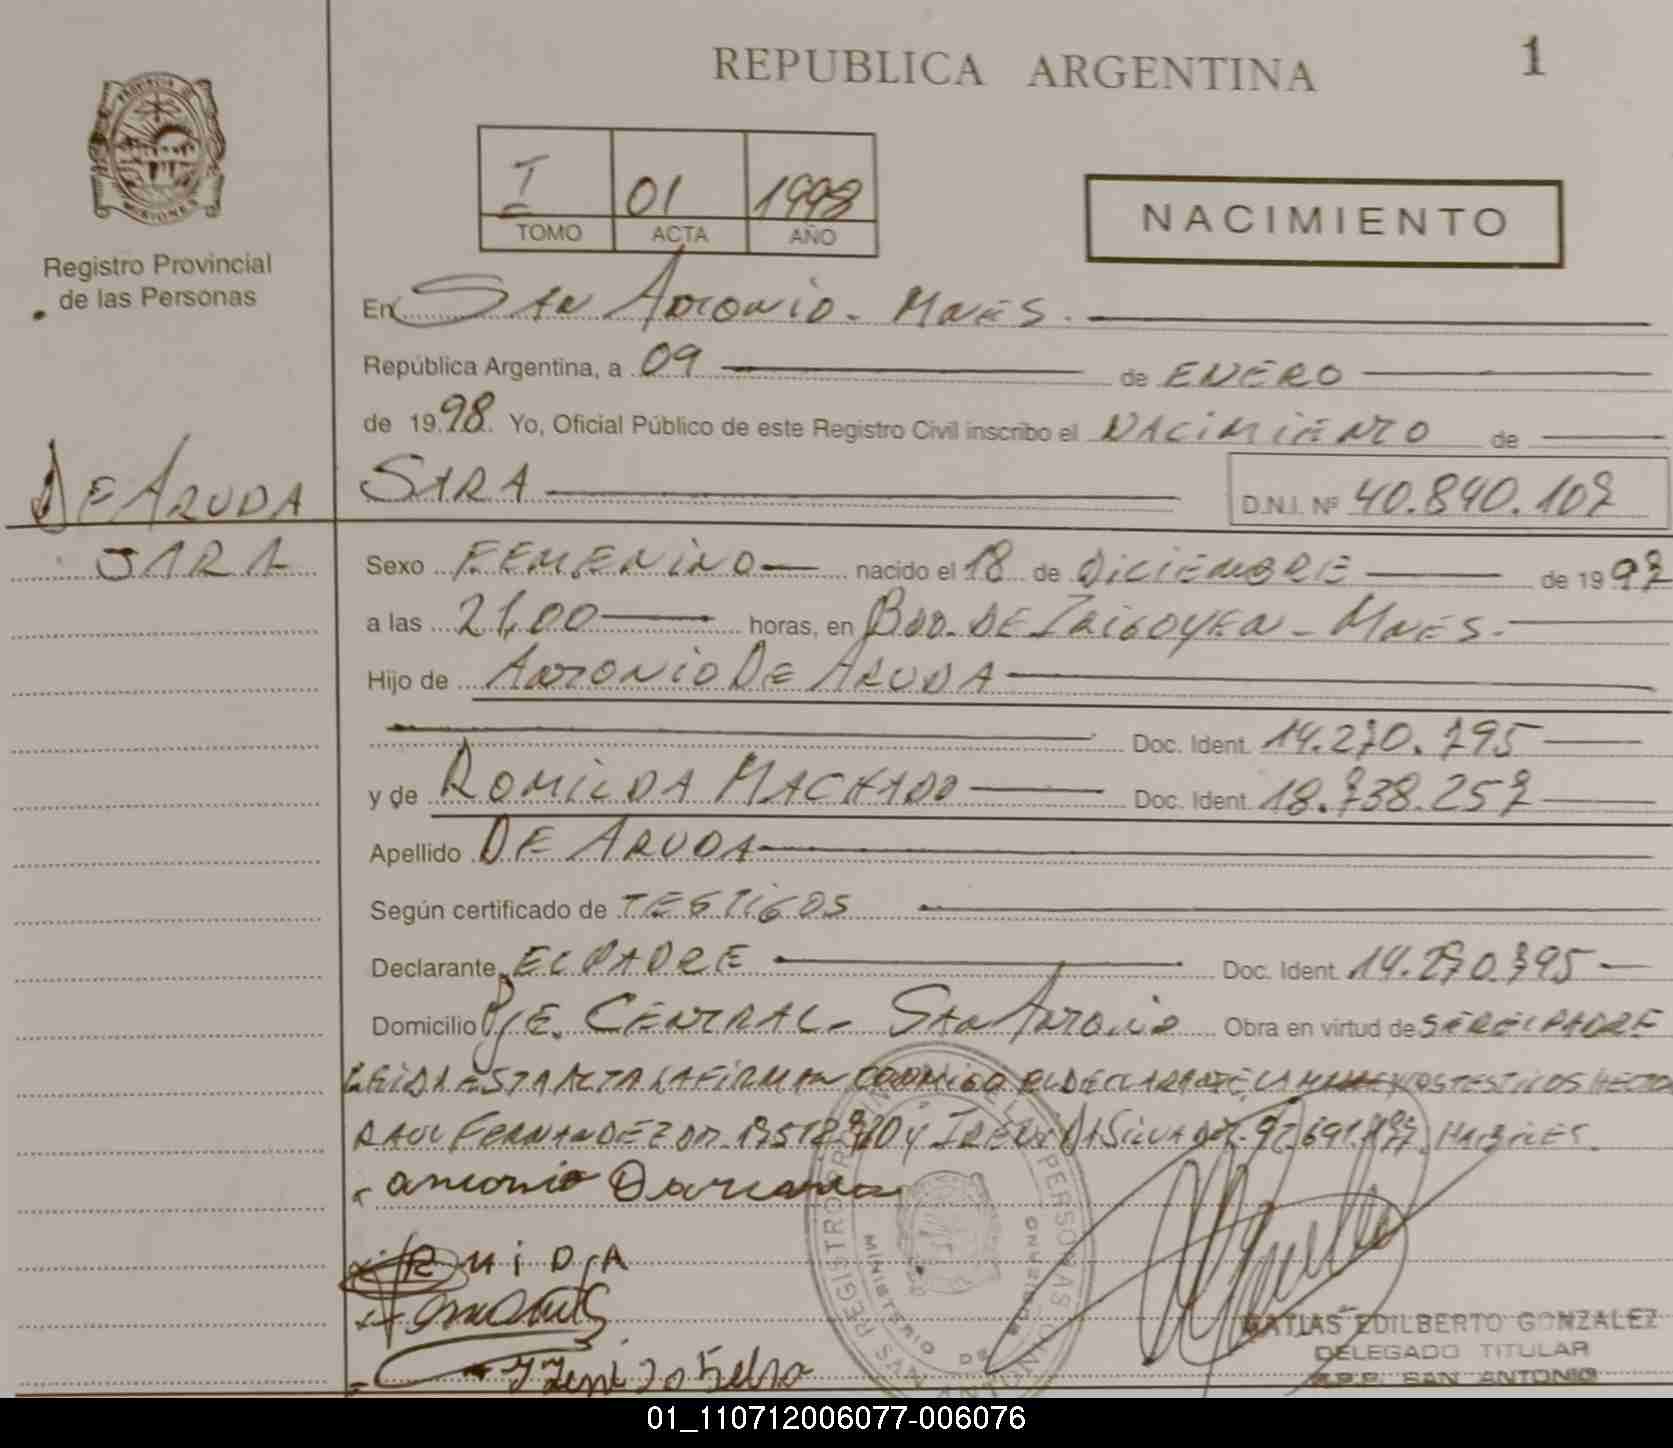 REPUBLICA ARGENTINA
1
PROVINCIA DE
MISIONES
Registro Provincial
de las Personas
I 01 1998
TOMO ACTA AÑO
NACIMIENTO
En SAN ANTONIO - MNES.
República Argentina, a 09 de ENERO
de 1998. Yo, Oficial Público de este Registro Civil inscribo el NACIMIENTO de
DE ARUDA
SARA
SARA D.N.I. Nº 40.840.107
Sexo FEMENINO nacido el 18 de DICIEMBRE de 1997
a las 21,00 horas, en BDO. DE IRIGOYEN - MNES.
Hijo de ANTONIO DE ARUDA
Doc. Ident. 14.270.795
y de ROMILDA MACHADO Doc. Ident. 18.738.257
Apellido DE ARUDA
Según certificado de TESTIGOS
Declarante EL PADRE Doc. Ident. 14.270.795
Domicilio PJE. CENTRAL - SAN ANTONIO Obra en virtud de SER EL PADRE
LEIDA ESTA ACTA LA FIRMAN CONMIGO EL DECLARANTE LA Y LOS TESTIGOS HECTOR
RAUL FERNANDEZ Y IRENI DA SILVA HABILES.
antonio
MATIAS EDILBERTO GONZALEZ
DELEGADO TITULAR
R.P.P. SAN ANTONIO
01_110712006077-006076